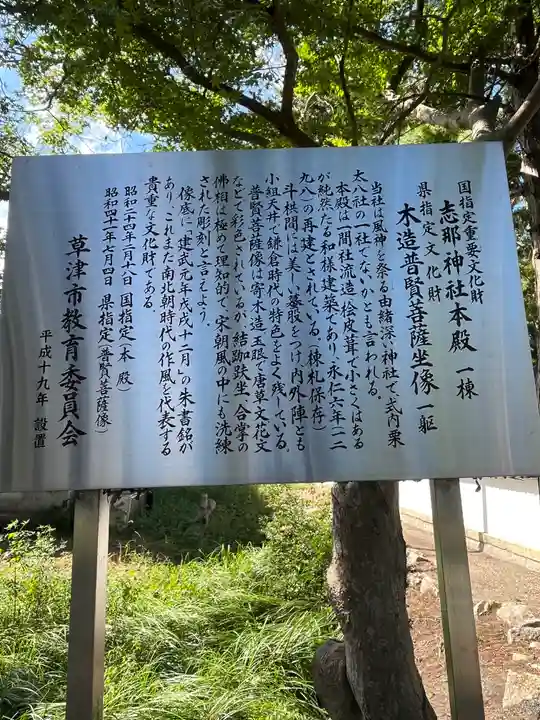 国指定重要文化財
志那神社本殿 一棟
県指定文化財
木造普賢菩薩坐像 一躯
当社は風神を祭る由緒深い神社で、式内栗
太八社の一社でないかとも言われる。
本殿は一間社流造、桧皮葺で小さくはある
が純然たる和様建築であり、永仁六年(一二
九八)の再建とされている。(棟札保存)
斗栱間には美しい蟇股をつけ内外陣とも
小組天井で鎌倉時代の特色をよく残している。
普賢菩薩像は寄木造、玉眼で唐草文花文
などと彩色されているが、結跏趺坐、合掌の
佛相は極めて理知的で、宋朝風の中にも洗練
された彫刻と言えよう。
像底に「建武元年戊戌十二月」の朱書銘が
あり、これまた南北朝時代の作風を代表する
貴重な文化財である。
昭和二十四年二月十八日 国指定(本殿)
昭和四十一年七月四日 県指定(普賢菩薩像)
草津市教育委員会
平成十九年 設置